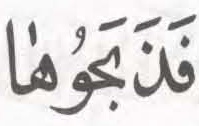 فَذَبَحُوهٰا